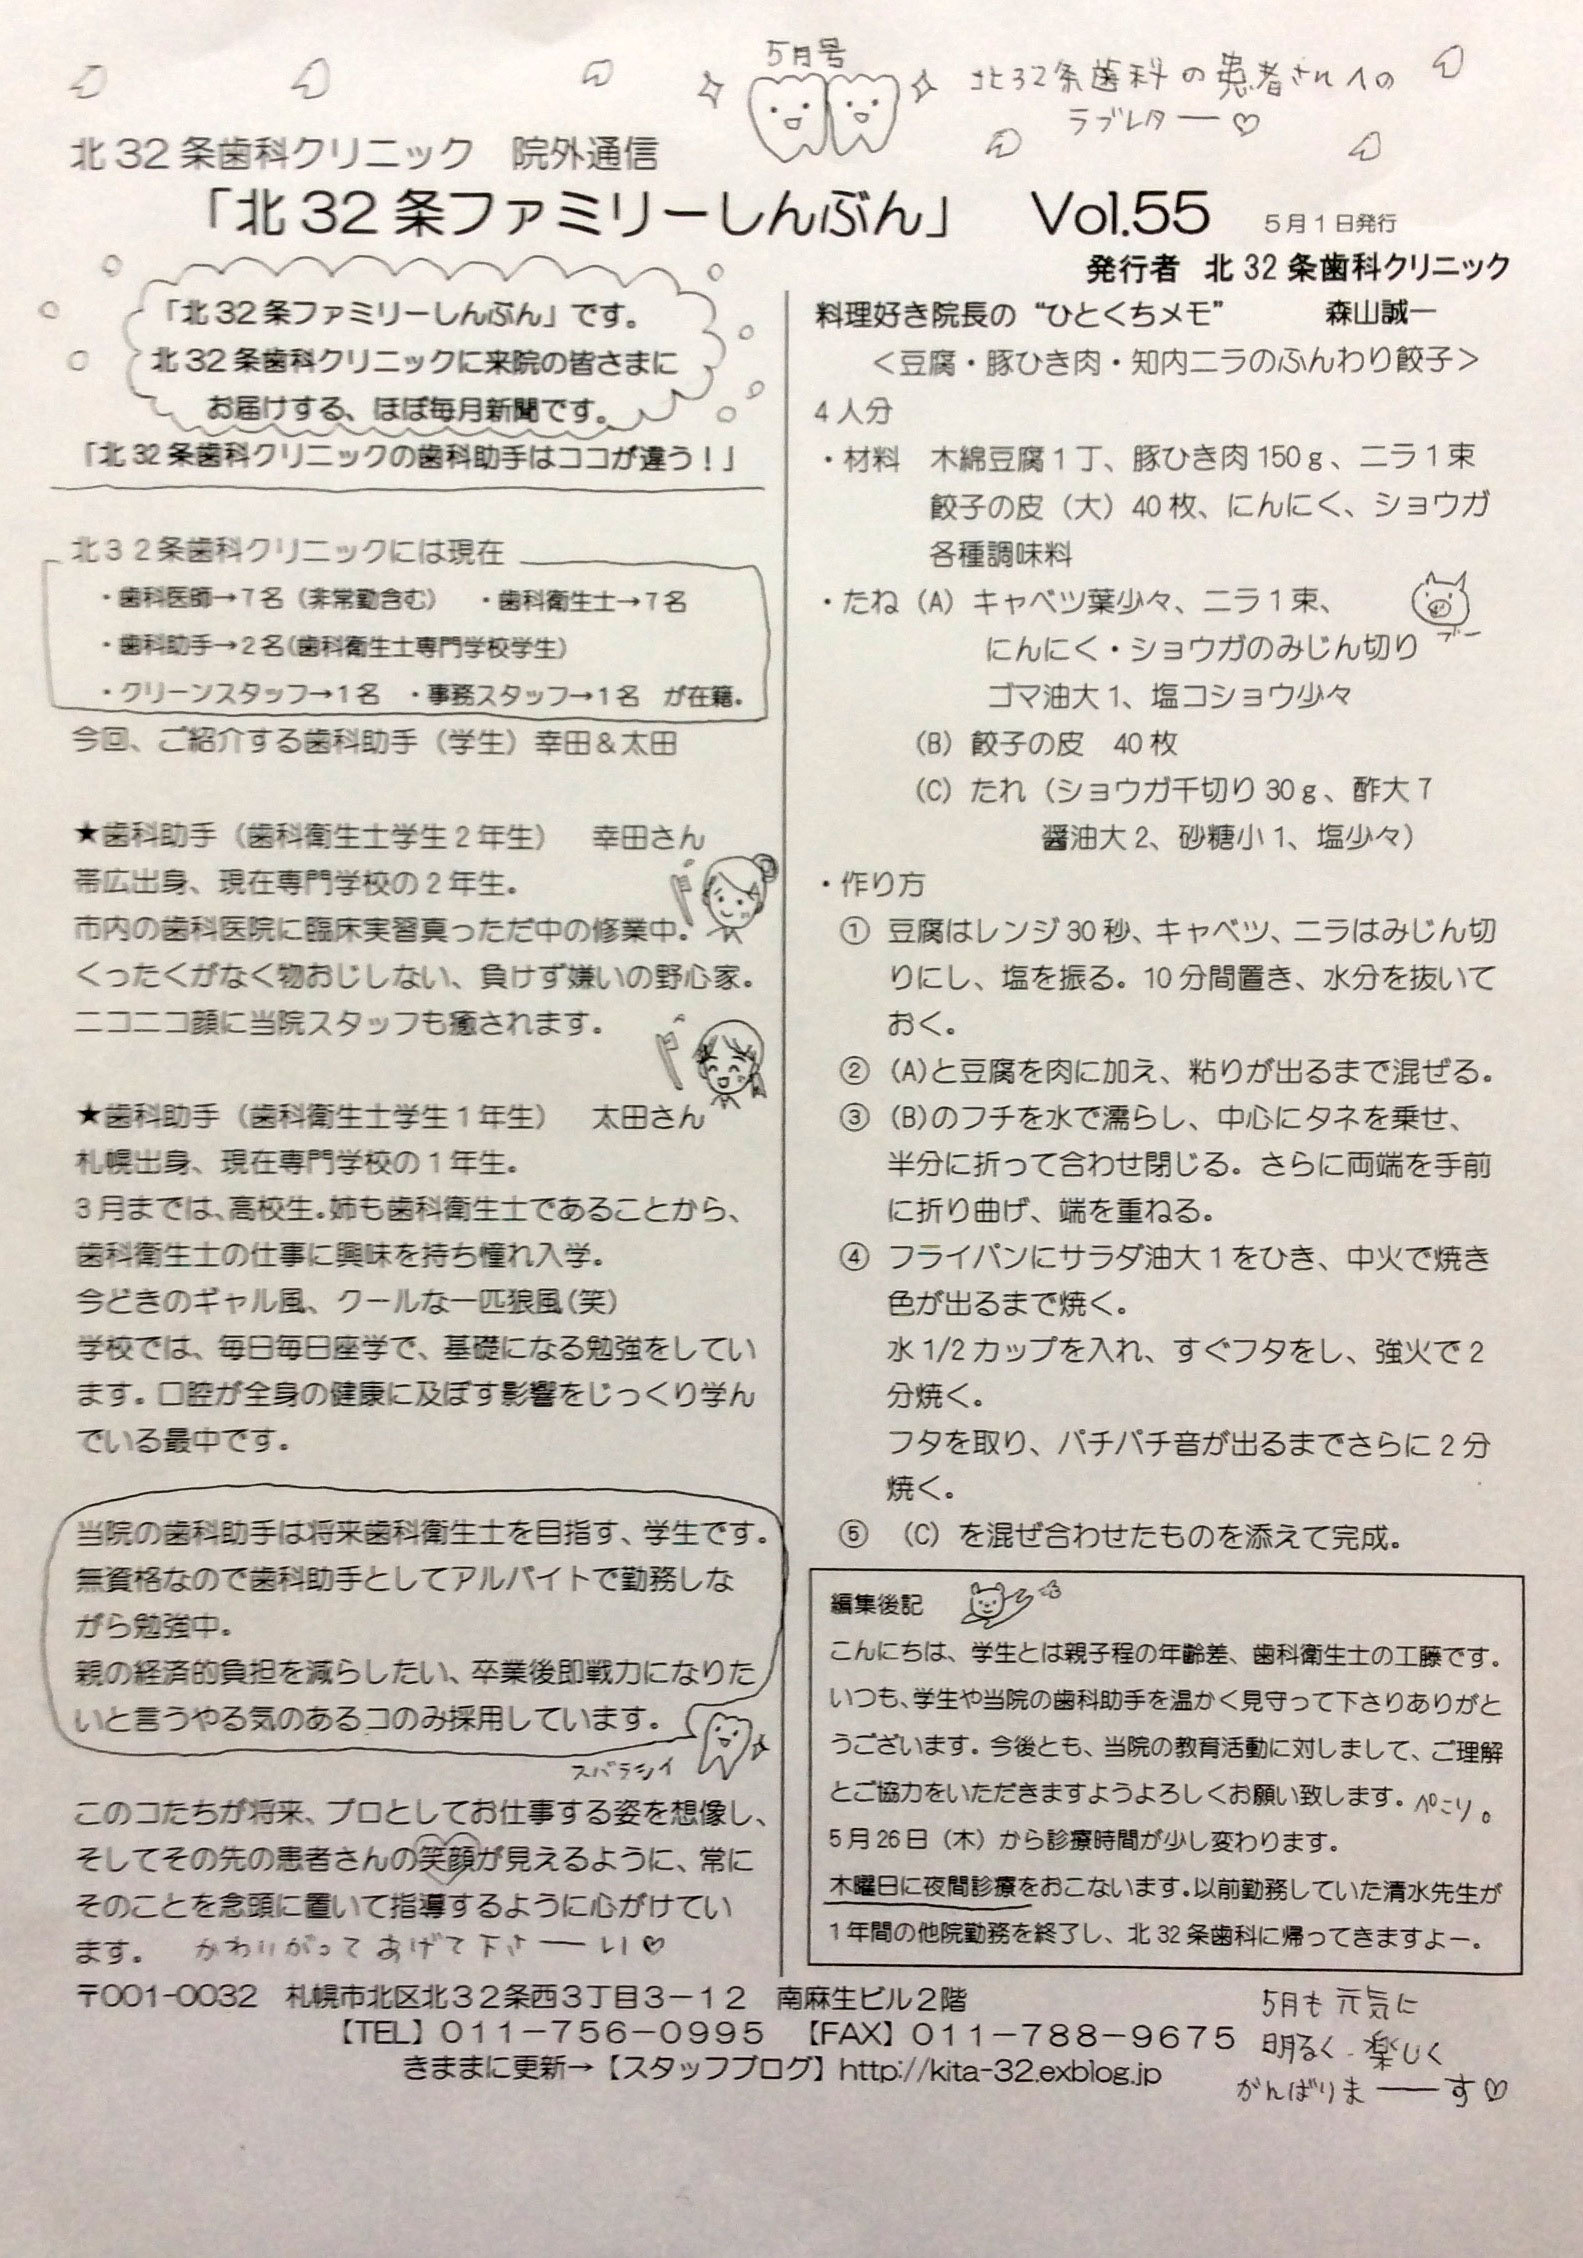 5月号
北32条歯科の患者さんへの
ラブレター♡
北32条歯科クリニック 院外通信
「北32条ファミリーしんぶん」 Vol.55 5月1日発行
発行者 北32条歯科クリニック
「北32条ファミリーしんぶん」です。
北32条歯科クリニックに来院の皆さまに
お届けする、ほぼ毎月新聞です。
「北32条歯科クリニックの歯科助手はココが違う！」
北32条歯科クリニックには現在
・歯科医師→7名（非常勤含む） ・歯科衛生士→7名
・歯科助手→2名(歯科衛生士専門学校学生)
・クリーンスタッフ→1名 ・事務スタッフ→1名 が在籍。
今回、ご紹介する歯科助手（学生）幸田＆太田
★歯科助手（歯科衛生士学生2年生） 幸田さん
帯広出身、現在専門学校の2年生。
市内の歯科医院に臨床実習真っただ中の修業中。
くったくがなく物おじしない、負けず嫌いの野心家。
ニコニコ顔に当院スタッフも癒されます。
★歯科助手（歯科衛生士学生1年生） 太田さん
札幌出身、現在専門学校の1年生。
3月までは、高校生。姉も歯科衛生士であることから、
歯科衛生士の仕事に興味を持ち憧れ入学。
今どきのギャル風、クールな一匹狼風(笑)
学校では、毎日毎日座学で、基礎になる勉強をしてい
ます。口腔が全身の健康に及ぼす影響をじっくり学ん
でいる最中です。
当院の歯科助手は将来歯科衛生士を目指す、学生です。
無資格なので歯科助手としてアルバイトで勤務しな
がら勉強中。
親の経済的負担を減らしたい、卒業後即戦力になりた
いと言うやる気のあるコのみ採用しています。
スバラシイ
このコたちが将来、プロとしてお仕事する姿を想像し、
そしてその先の患者さんの笑顔が見えるように、常に
そのことを念頭に置いて指導するように心がけてい
ます。 かわいがってあげて下さーい♡
料理好き院長の“ひとくちメモ” 森山誠一
＜豆腐・豚ひき肉・知内ニラのふんわり餃子＞
4人分
・材料 木綿豆腐1丁、豚ひき肉150g、ニラ1束
餃子の皮（大）40枚、にんにく、ショウガ
各種調味料
・たね（A）キャベツ葉少々、ニラ1束、
にんにく・ショウガのみじん切り
ブー
ゴマ油大1、塩コショウ少々
（B）餃子の皮 40枚
（C）たれ（ショウガ千切り30g、酢大7
醤油大2、砂糖小1、塩少々）
・作り方
① 豆腐はレンジ30秒、キャベツ、ニラはみじん切
りにし、塩を振る。10分間置き、水分を抜いて
おく。
② (A)と豆腐を肉に加え、粘りが出るまで混ぜる。
③ (B)のフチを水で濡らし、中心にタネを乗せ、
半分に折って合わせ閉じる。さらに両端を手前
に折り曲げ、端を重ねる。
④ フライパンにサラダ油大1をひき、中火で焼き
色が出るまで焼く。
水1/2カップを入れ、すぐフタをし、強火で2
分焼く。
フタを取り、パチパチ音が出るまでさらに2分
焼く。
⑤ （C）を混ぜ合わせたものを添えて完成。
編集後記
こんにちは、学生とは親子程の年齢差、歯科衛生士の工藤です。
いつも、学生や当院の歯科助手を温かく見守って下さりありがと
うございます。今後とも、当院の教育活動に対しまして、ご理解
とご協力をいただきますようよろしくお願い致します。ぺこり。
5月26日（木）から診療時間が少し変わります。
木曜日に夜間診療をおこないます。以前勤務していた清水先生が
1年間の他院勤務を終了し、北32条歯科に帰ってきますよー。
〒001-0032 札幌市北区北32条西3丁目3－12 南麻生ビル2階
【TEL】011－756－0995 【FAX】011－788－9675
きままに更新→【スタッフブログ】http://kita-32.exblog.jp
5月も元気に
明るく、楽しく
がんばりまーーす♡